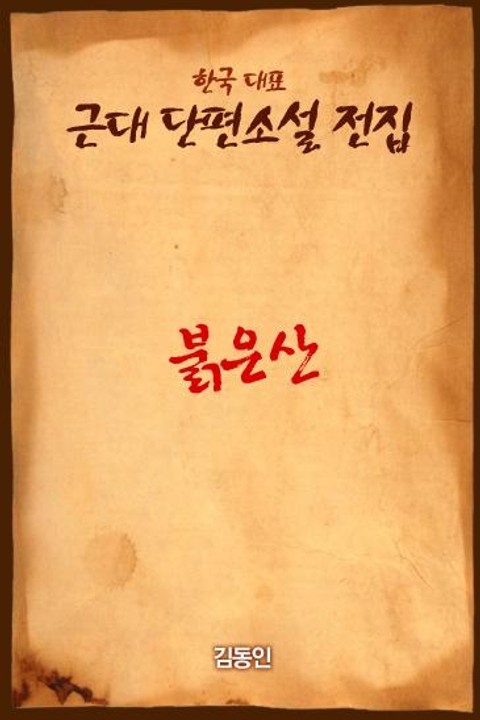 한국 대표
근대 단편소설 전집
붉은산
김동인